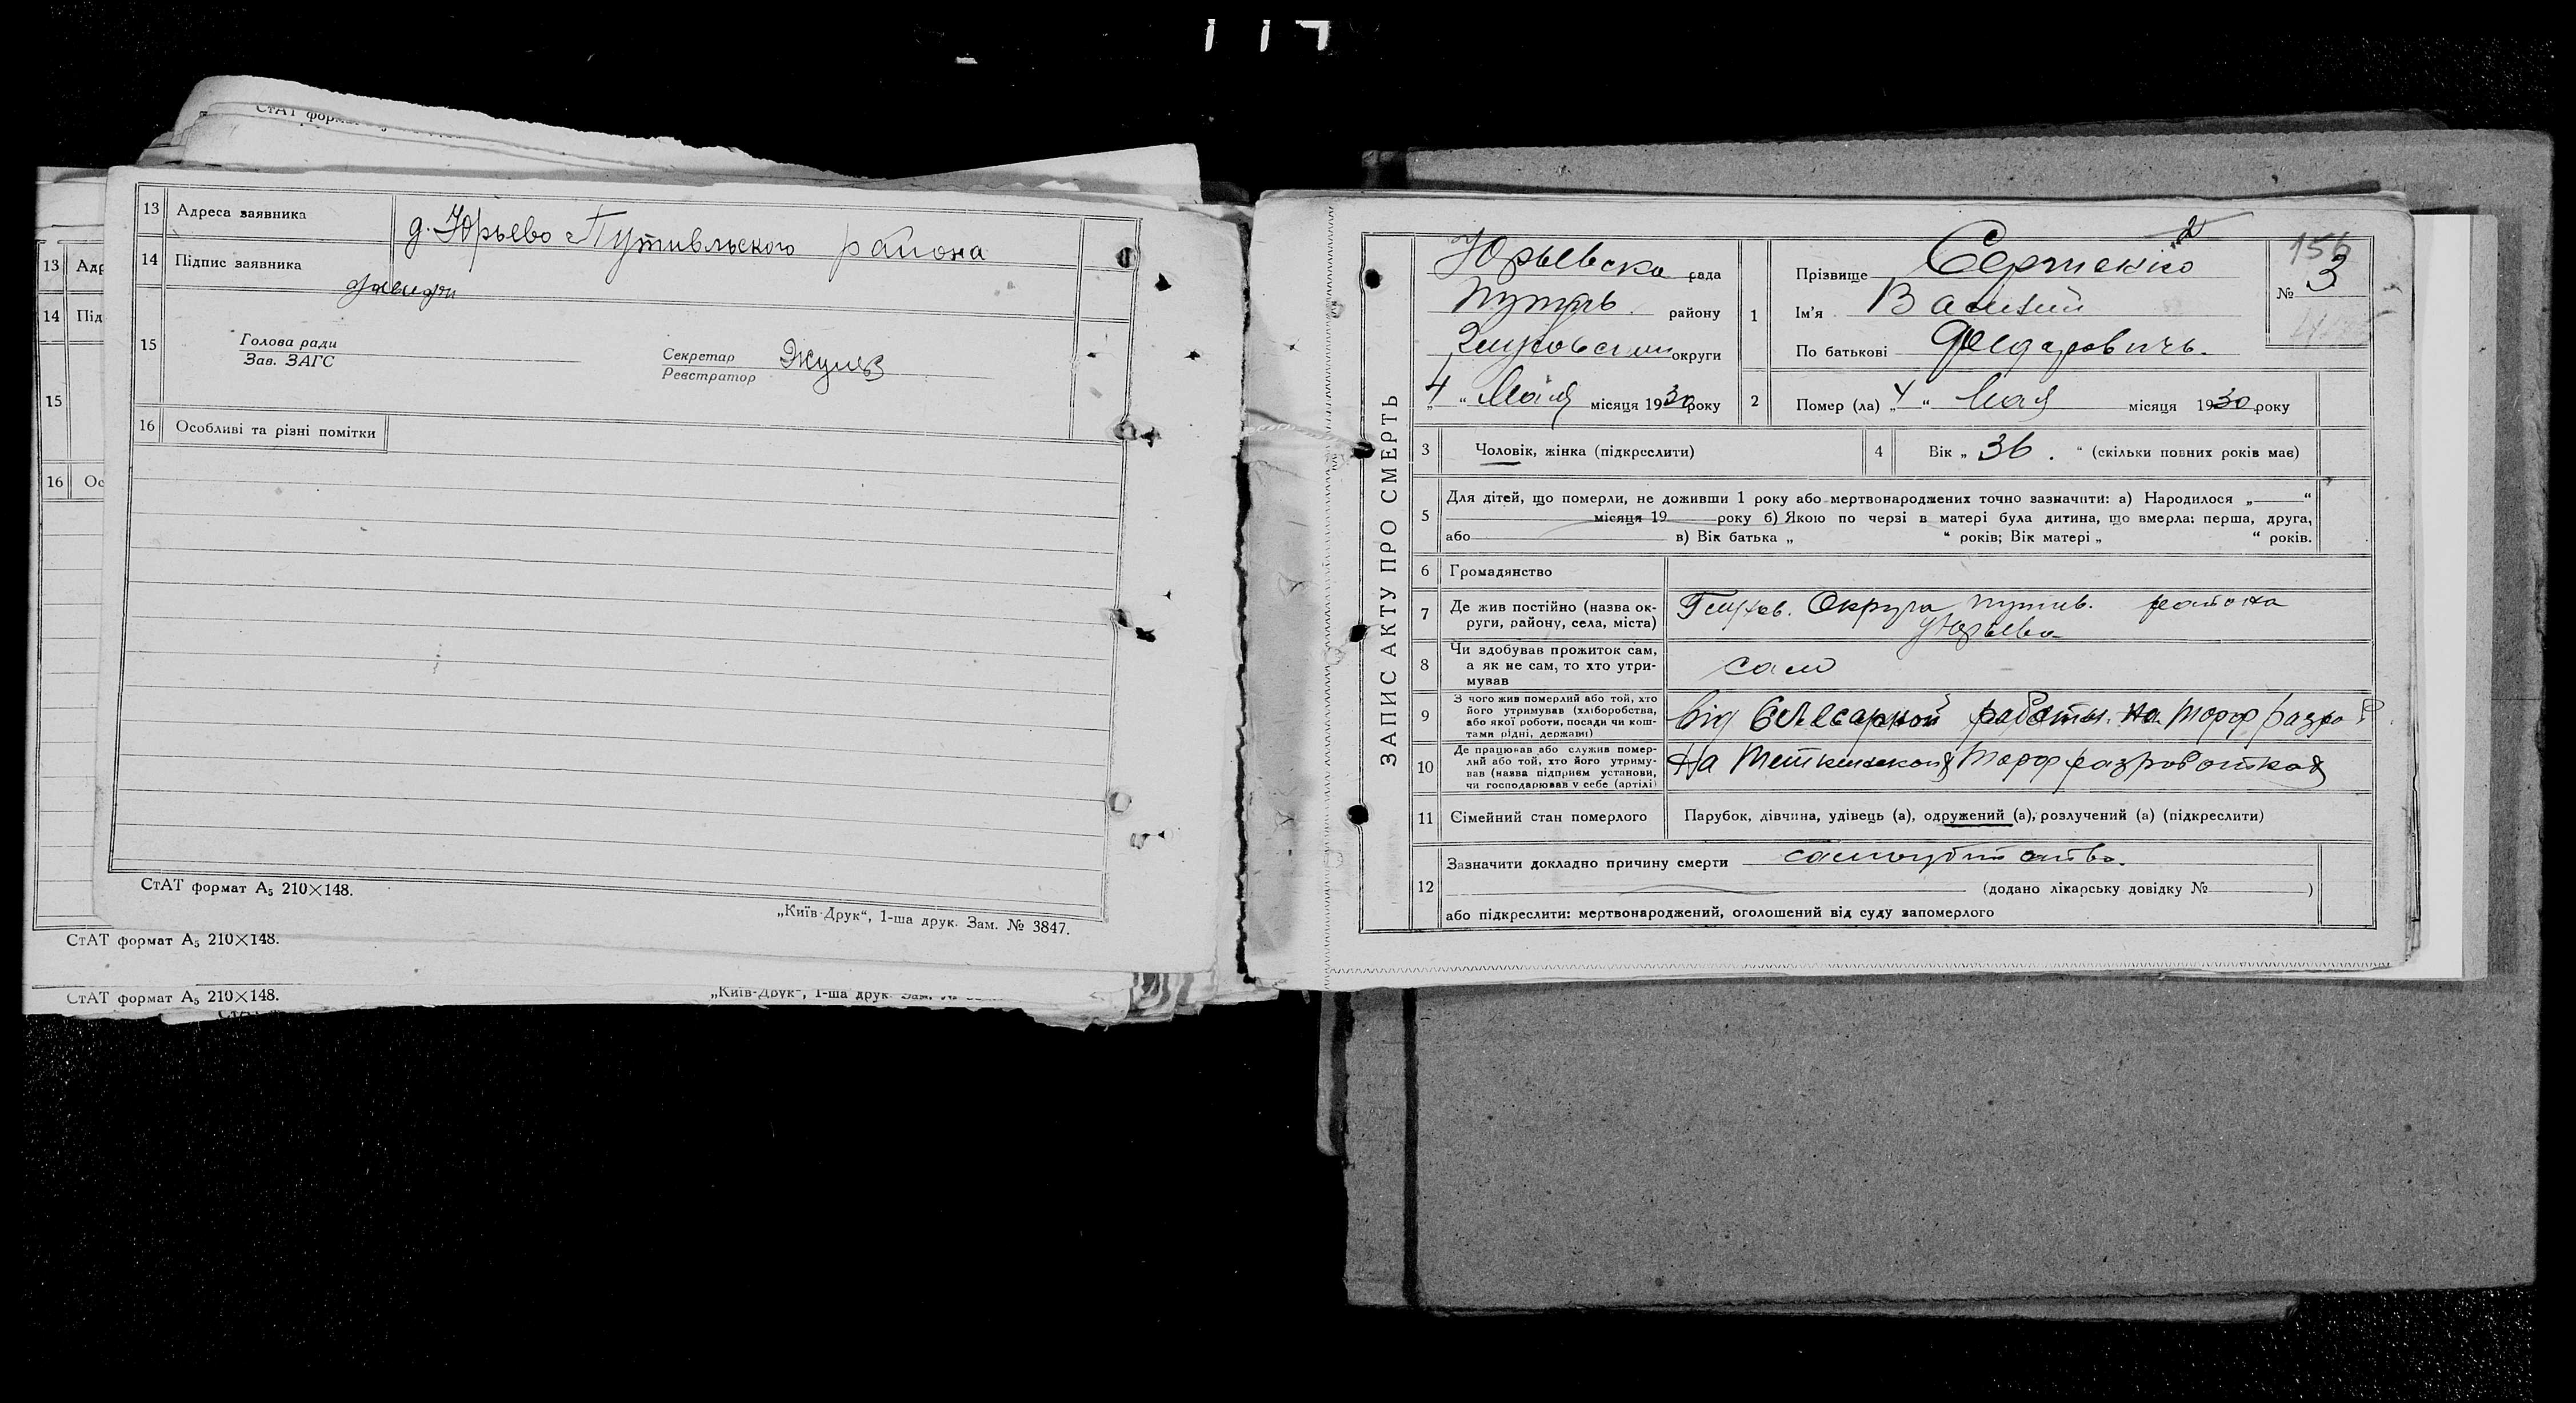 СтАТ форм
13 Адреса заявника д. Юрьево Путивльского района
14 Підпис заявника
15 Голова ради
Зав. ЗАГС
Секретар
Реєстратор
16 Особливі та різні помітки
СтАТ формат А₅ 210×148.
„Київ-Друк“, 1-ша друк. Зам. № 3847.
13 Адр
14 Під
15
16 Ос
СтАТ формат А₅ 210×148.
СтАТ формат А₅ 210×148.
„Київ-Друк“, 1-ша друк. Зам. №
ЗАПИС АКТУ ПРО СМЕРТЬ
Юрьевска рада
району
округи
„4“ Мая місяця 1930 року
156
№ 3
1 Прізвище
Ім'я Василий
По батькові Федорович.
2 Помер (ла) „4“ Мая місяця 1930 року
3 Чоловік, жінка (підкреслити)
4 Вік „36.“ (скільки повних років має)
5 Для дітей, що померли, не доживши 1 року або мертвонароджених точно зазначити: а) Народилося „ “
місяця 19 року б) Якою по черзі в матері була дитина, що вмерла: перша, друга,
або в) Вік батька „ “ років; Вік матері „ “ років.
6 Громадянство
7 Де жив постійно (назва ок-
руги, району, села, міста)
Глухов. Округа путив. района
Юрьево
8 Чи здобував прожиток сам,
а як не сам, то хто утри-
мував
сам
9 З чого жив померлий або той, хто
його утримував (хліборобства,
або якої роботи, посади чи кош-
тами рідні, держави)
від слесарной работы на торф разра
10 Де працював або служив помер-
лий або той, хто його утриму-
вав (назва підприєм установи,
чи господарював у себе (артілі)
На Теткинской Торфразработках
11 Сімейний стан померлого Парубок, дівчина, удівець (а), одружений (а), розлучений (а) (підкреслити)
12 Зазначити докладно причину смерти самоубийство.
(додано лікарську довідку № )
або підкреслити: мертвонароджений, оголошений від суду запомерлого